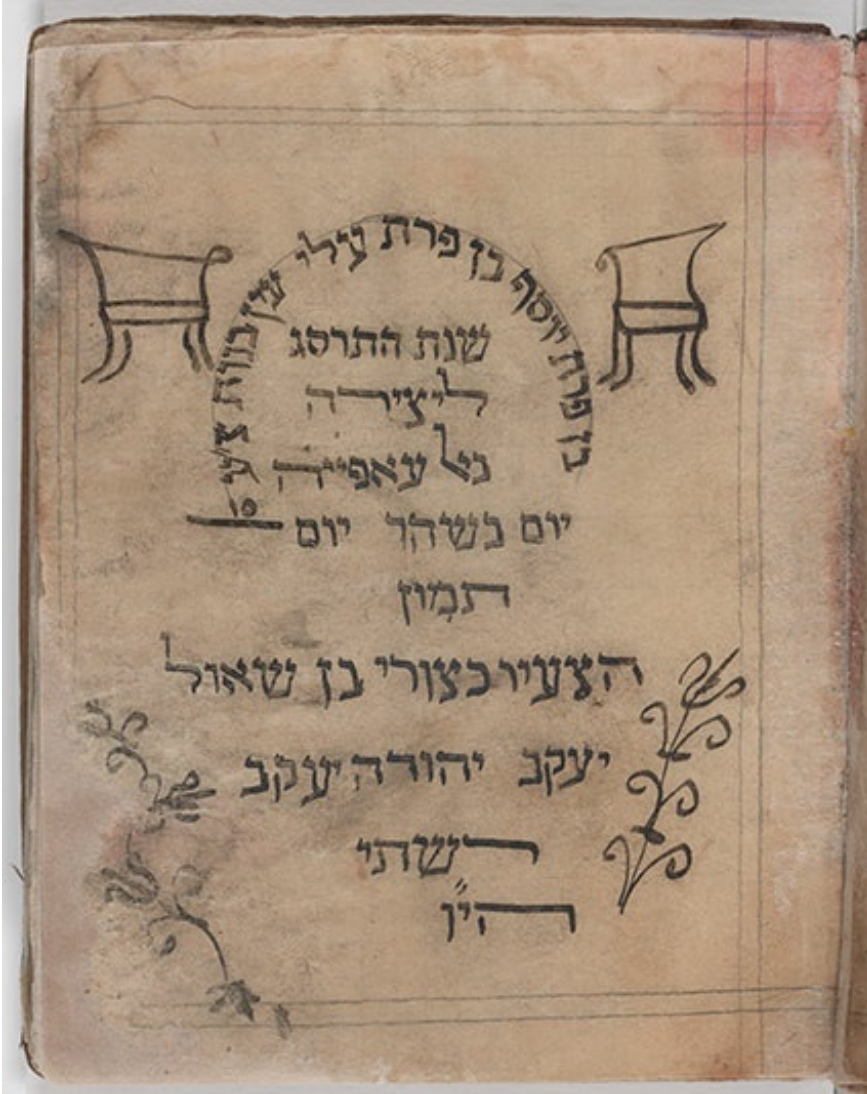 בן פרת יוסף בן פרת עלי עין בנות צע
שנת התרסג
ליצירה
כאל עאפייה
יום בשהר יום
תמוז
הצעיר בצורי בן שאול
יעקב יהודה יעקב
רשתי
הי״ו